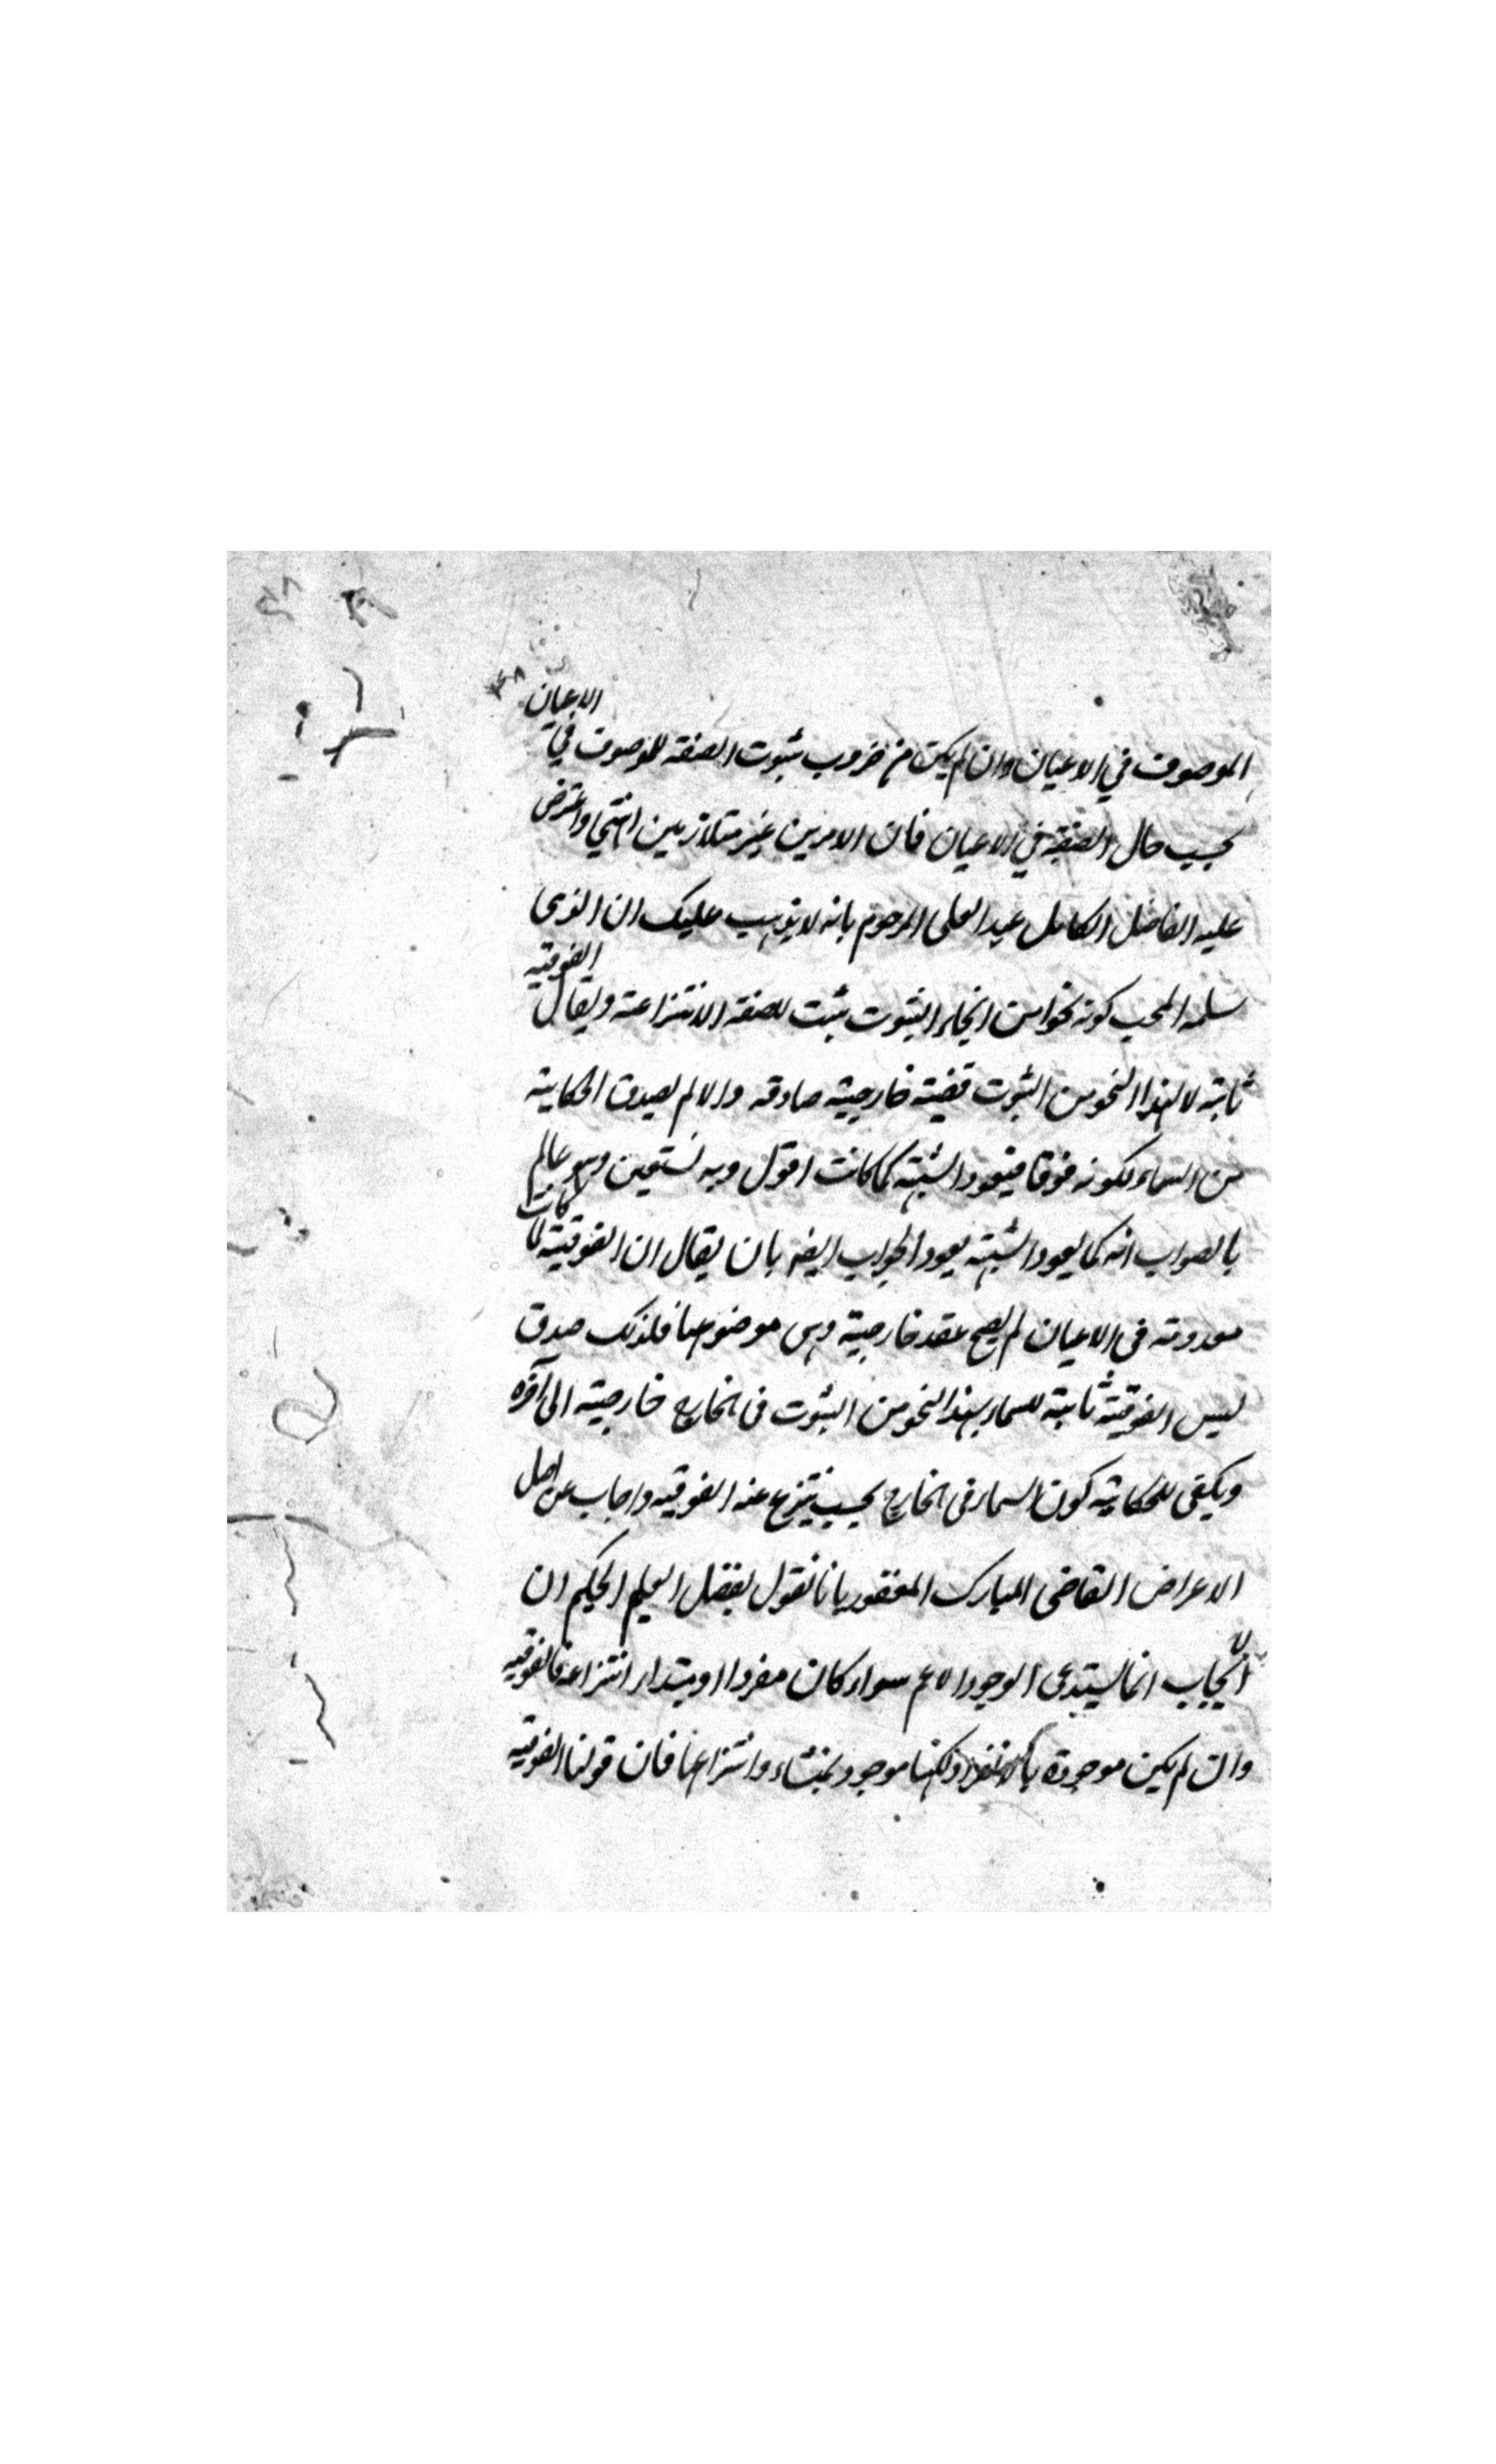 الموصوف في الاعيان وان لم يكن من ضروب ثبوت الصفة للموصوف في الاعيان
بحسب حال الصفة في الاعيان فان الامرين غير متلازمين انتهى واعترض
عليه الفاضل الكامل عبد العلى المرحوم بانه لا يذهب عليك ان الذى
سلمه المحب كونه نحوا من انحاء الثبوت يثبت للصفة الانتزاعية ويقال الفوقية
ثابتة لا لهذا النحو من الثبوت قضية خارجية صادقة والا لم يصدق الحكاية
من السماء لكونه فوقا فيعود الشبهة كما كانت اقول وبه نستعين وهو عالم
بالصواب انه كما يعود الشبهة يعود الجواب ايضه بان يقال ان الفوقية لما كانت
معدومة فى الاعيان لم يصح عقد خارجية وهى موضوعها فلذلك صدق
ليس الفوقية ثابتة للسماء بهذا النحو من الثبوت فى الخارج خارجية الى آخره
ويكفى للحكاية كون السماء فى الخارج بحيث ينتزع عنه الفوقية واجاب عن اصل
الاعراض القاضى المبارك المغفور بانا نقول بفضل العليم الحكيم ان
الايجاب انما يستدعى الوجود الاعم سواء كان مفردا او بمبداء انتزاعه فالفوقية
وان لم يكن موجودة بالانفراد ولكنها موجود بمنشاء وانتزاعها فان قولنا الفوقية